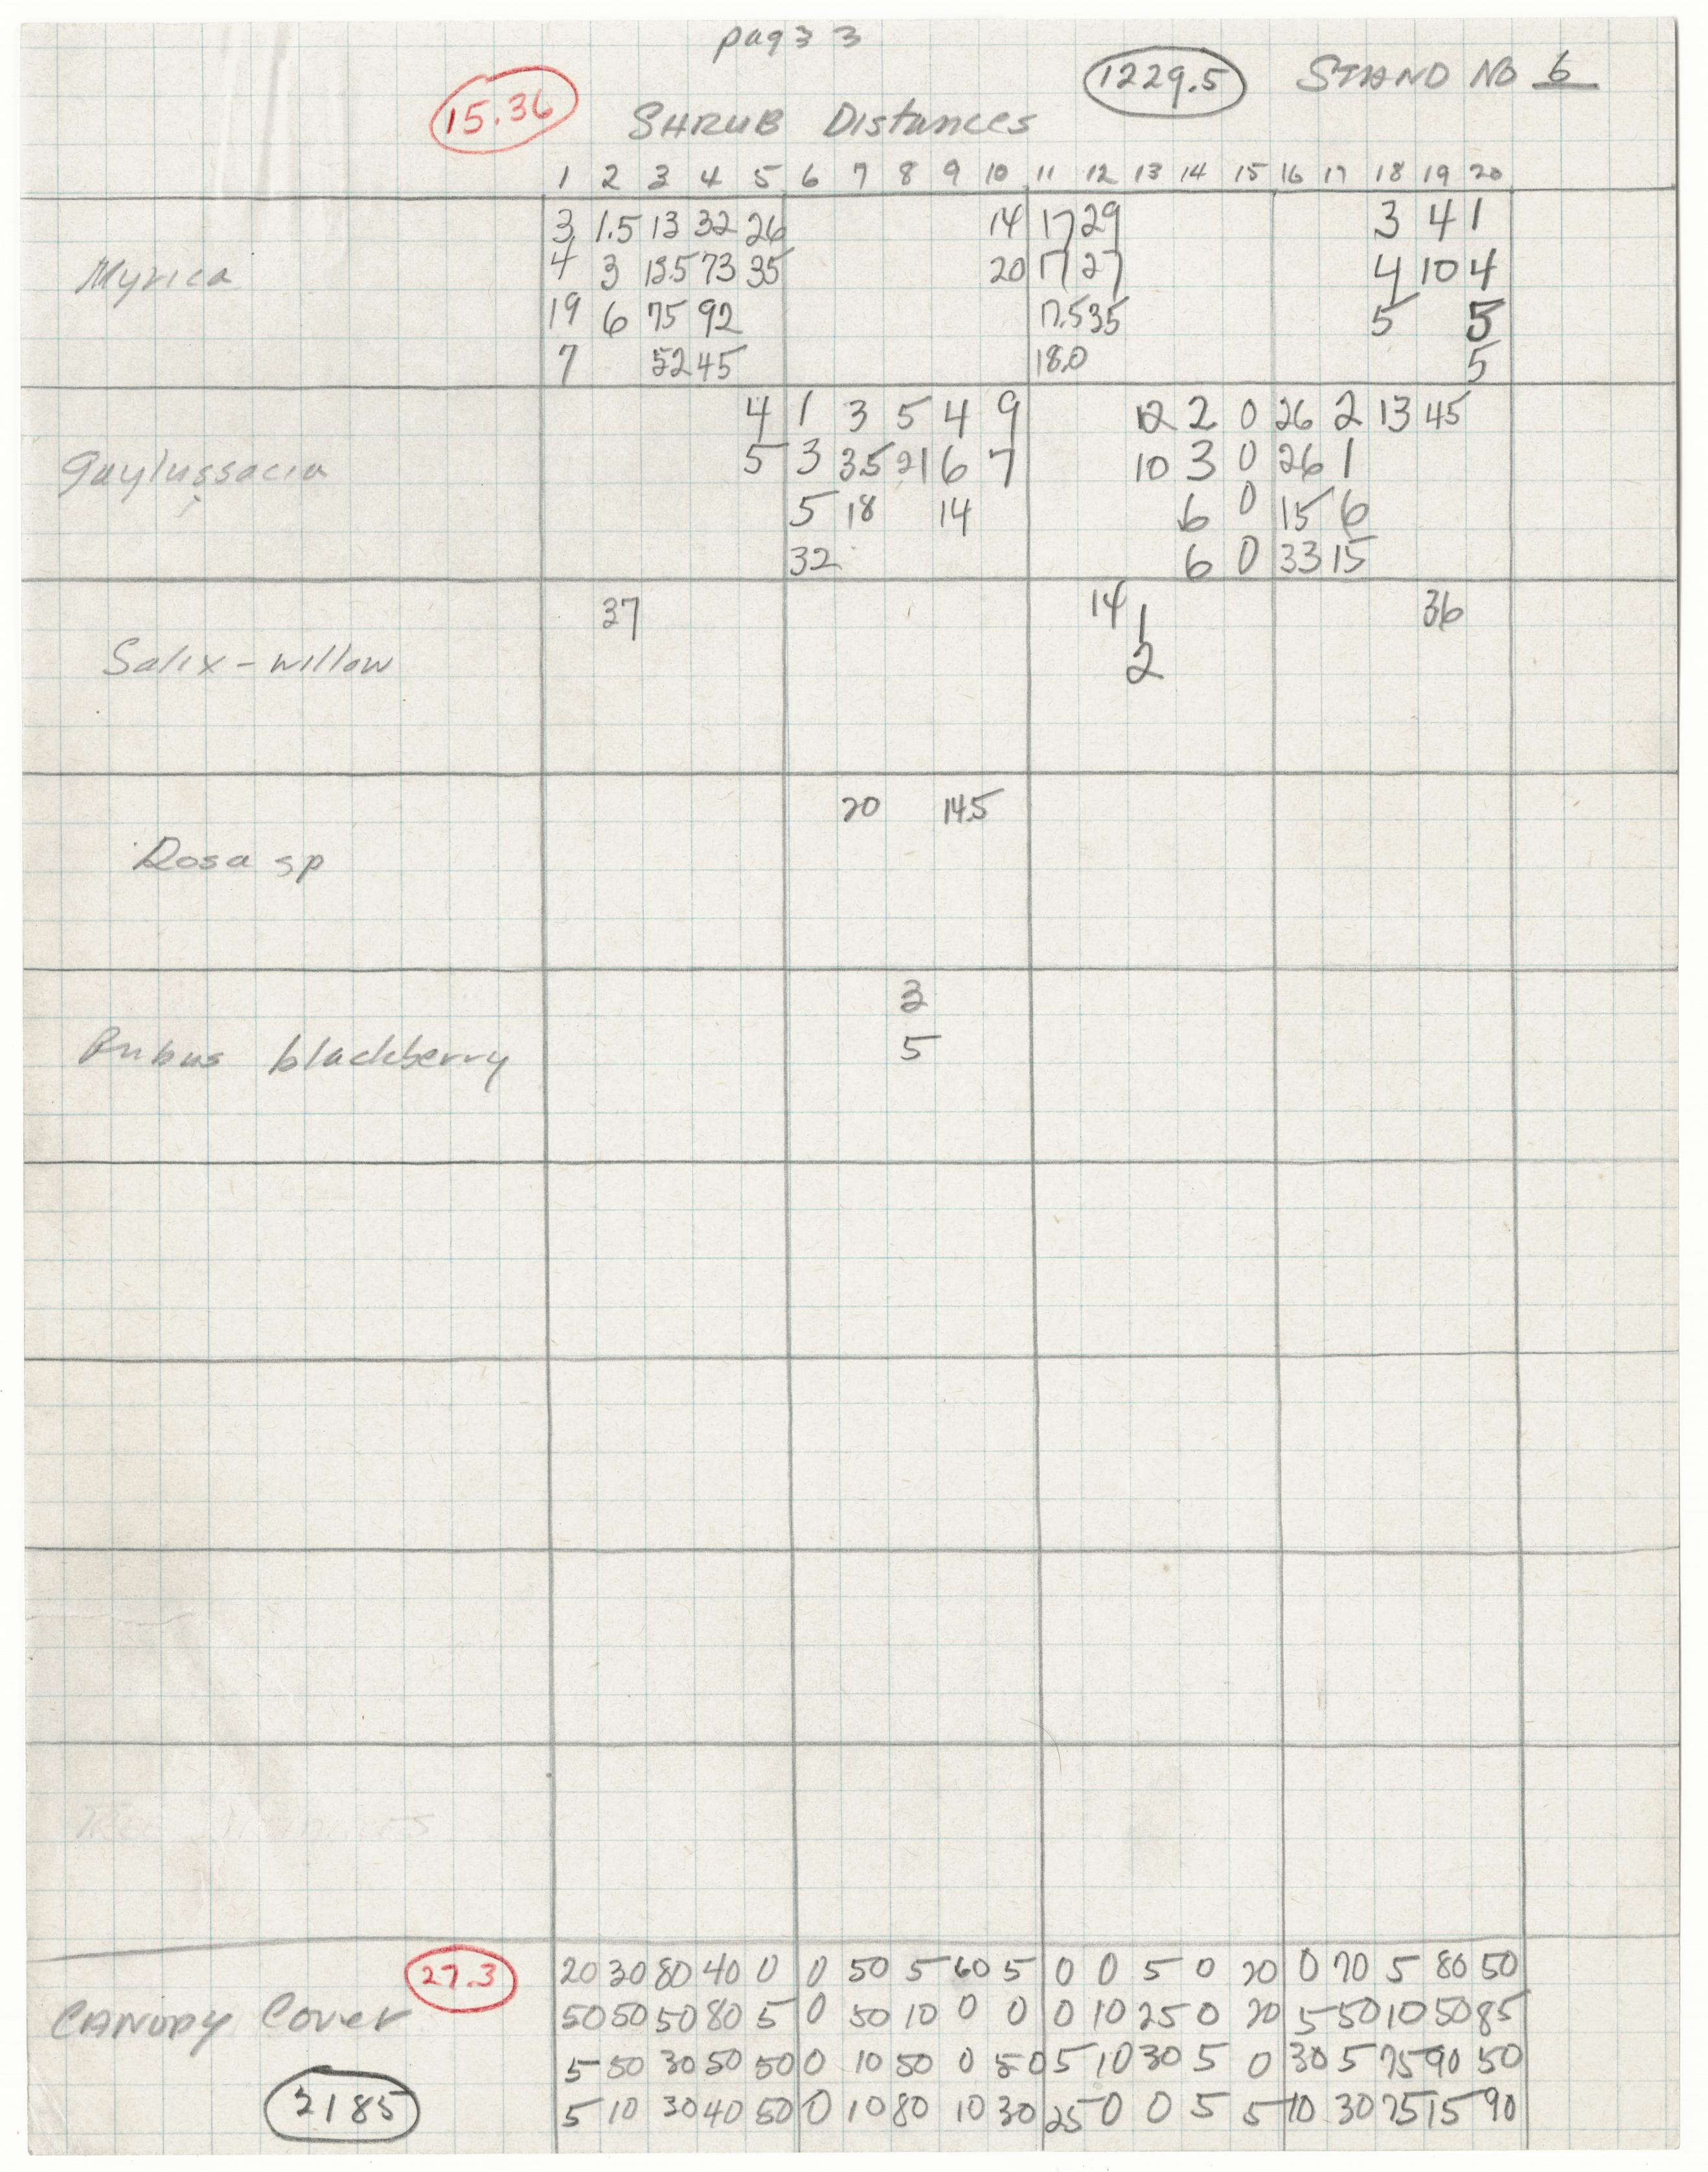 pag3 3
15.36 1229.5 STAND NO 6
SHRUB Distances
1 2 3 4 5 6 7 8 9 10 11 12 13 14 15 16 17 18 19 20
3 1.5 13 32 26 14 17 29 3 4 1
Myrica 4 3 13.5 73 35 20 17 27 4 10 4
19 6 75 92 17.5 35 5 5
7 52 45 18.0 5
4 1 3 5 4 9 12 2 0 26 2 13 45
Gaylussacia 5 3 3.5 21 6 7 10 3 0 26 1
5 18 14 6 0 15 6
32 6 0 33 15
37 14 1 36
Salix - willow 2
20 14.5
Rosa sp
3
Rubus blackberry 5
TREE DISTANCES
27.3 20 30 80 40 0 0 50 5 60 5 0 0 5 0 20 0 70 5 80 50
CANOPY Cover 50 50 50 80 5 0 50 10 0 0 0 10 25 0 20 5 50 10 50 85
5 50 30 50 50 0 10 50 0 50 5 10 30 5 0 30 5 75 90 50
2185 5 10 30 40 50 0 10 80 10 30 25 0 0 5 5 10 30 75 15 90